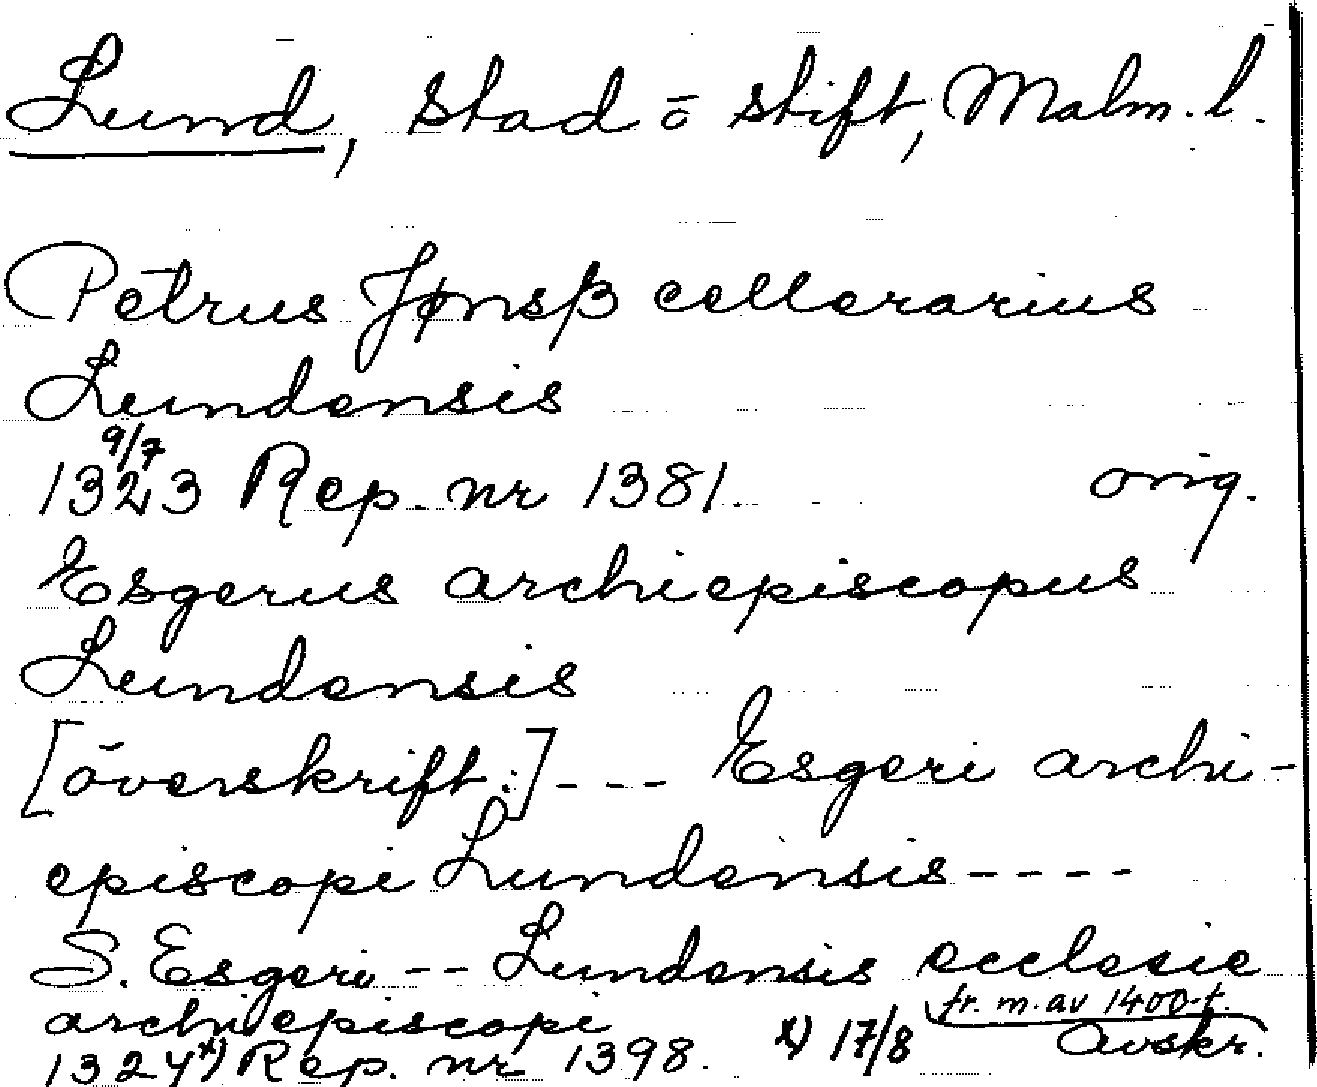 Lund, stad o stift, Malm. l.
Petrus Jønsß cellerarius
Lundensis
9/7
1323 Rep. nr 1381. orig.
Esgerus archiepiscopus
Lundensis
[överskrift:] - - - Esgeri archi-
episcopi Lundensis - - - -
S. Esgeri -- Lundensis ecclesie
archiepiscopi x) 17/8 fr. m. av 1400-t.
1324x) Rep. nr 1398. Avskr.